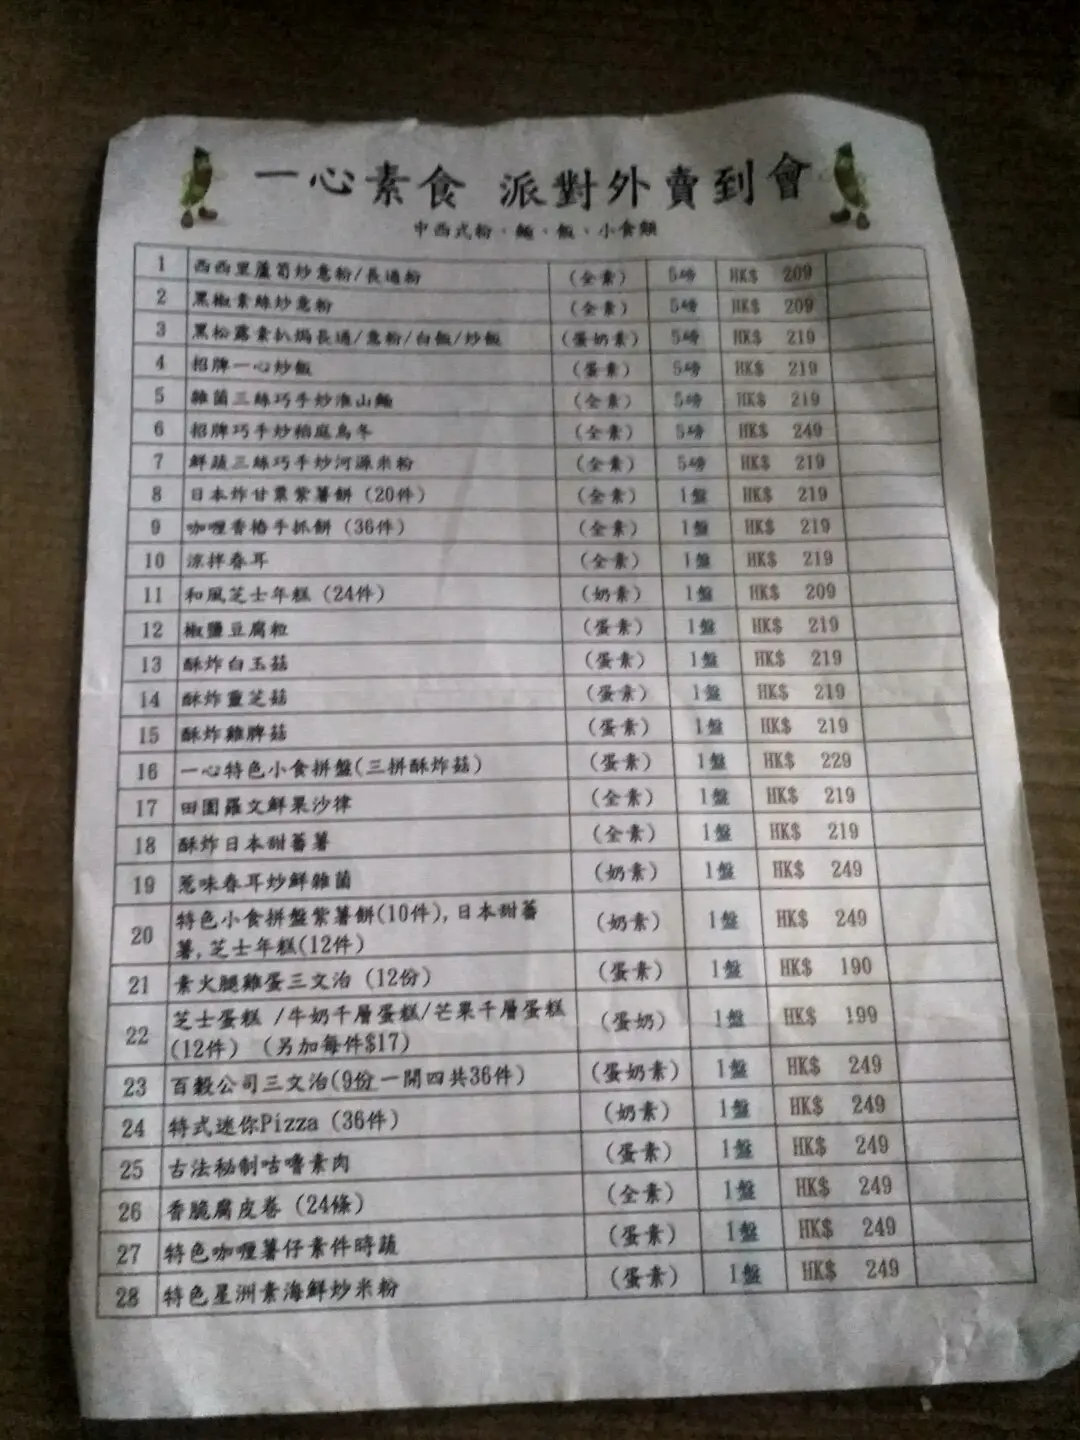 一心素食 派對外賣到會
中西式粉、麵、飯、小食類
1 西西里蘆筍炒意粉/長通粉 (全素) 5磅 HK$ 209
2 黑椒素絲炒意粉 (全素) 5磅 HK$ 209
3 黑松露素扒焗長通/意粉/白飯/炒飯 (蛋奶素) 5磅 HK$ 219
4 招牌一心炒飯 (蛋素) 5磅 HK$ 219
5 雜菌三絲巧手炒淮山麵 (全素) 5磅 HK$ 219
6 招牌巧手炒稻庭烏冬 (全素) 5磅 HK$ 249
7 鮮蔬三絲巧手炒河源米粉 (全素) 5磅 HK$ 219
8 日本炸甘栗紫薯餅 (20件) (全素) 1盤 HK$ 219
9 咖喱香椿手抓餅 (36件) (全素) 1盤 HK$ 219
10 涼拌春耳 (全素) 1盤 HK$ 219
11 和風芝士年糕 (24件) (奶素) 1盤 HK$ 209
12 椒鹽豆腐粒 (蛋素) 1盤 HK$ 219
13 酥炸白玉菇 (蛋素) 1盤 HK$ 219
14 酥炸靈芝菇 (蛋素) 1盤 HK$ 219
15 酥炸雞脾菇 (蛋素) 1盤 HK$ 219
16 一心特色小食拼盤(三拼酥炸菇) (蛋素) 1盤 HK$ 229
17 田園羅文鮮果沙律 (全素) 1盤 HK$ 219
18 酥炸日本甜蕃薯 (全素) 1盤 HK$ 219
19 惹味春耳炒鮮雜菌 (奶素) 1盤 HK$ 249
20 特色小食拼盤紫薯餅(10件),日本甜蕃
薯,芝士年糕(12件) (奶素) 1盤 HK$ 249
21 素火腿雞蛋三文治 (12份) (蛋素) 1盤 HK$ 190
22 芝士蛋糕 /牛奶千層蛋糕/芒果千層蛋糕
(12件) (另加每件$17) (蛋奶) 1盤 HK$ 199
23 百穀公司三文治(9份一開四共36件) (蛋奶素) 1盤 HK$ 249
24 特式迷你Pizza (36件) (奶素) 1盤 HK$ 249
25 古法秘制咕嚕素肉 (蛋素) 1盤 HK$ 249
26 香脆腐皮卷 (24條) (全素) 1盤 HK$ 249
27 特色咖喱薯仔素件時蔬 (蛋素) 1盤 HK$ 249
28 特色星洲素海鮮炒米粉 (蛋素) 1盤 HK$ 249